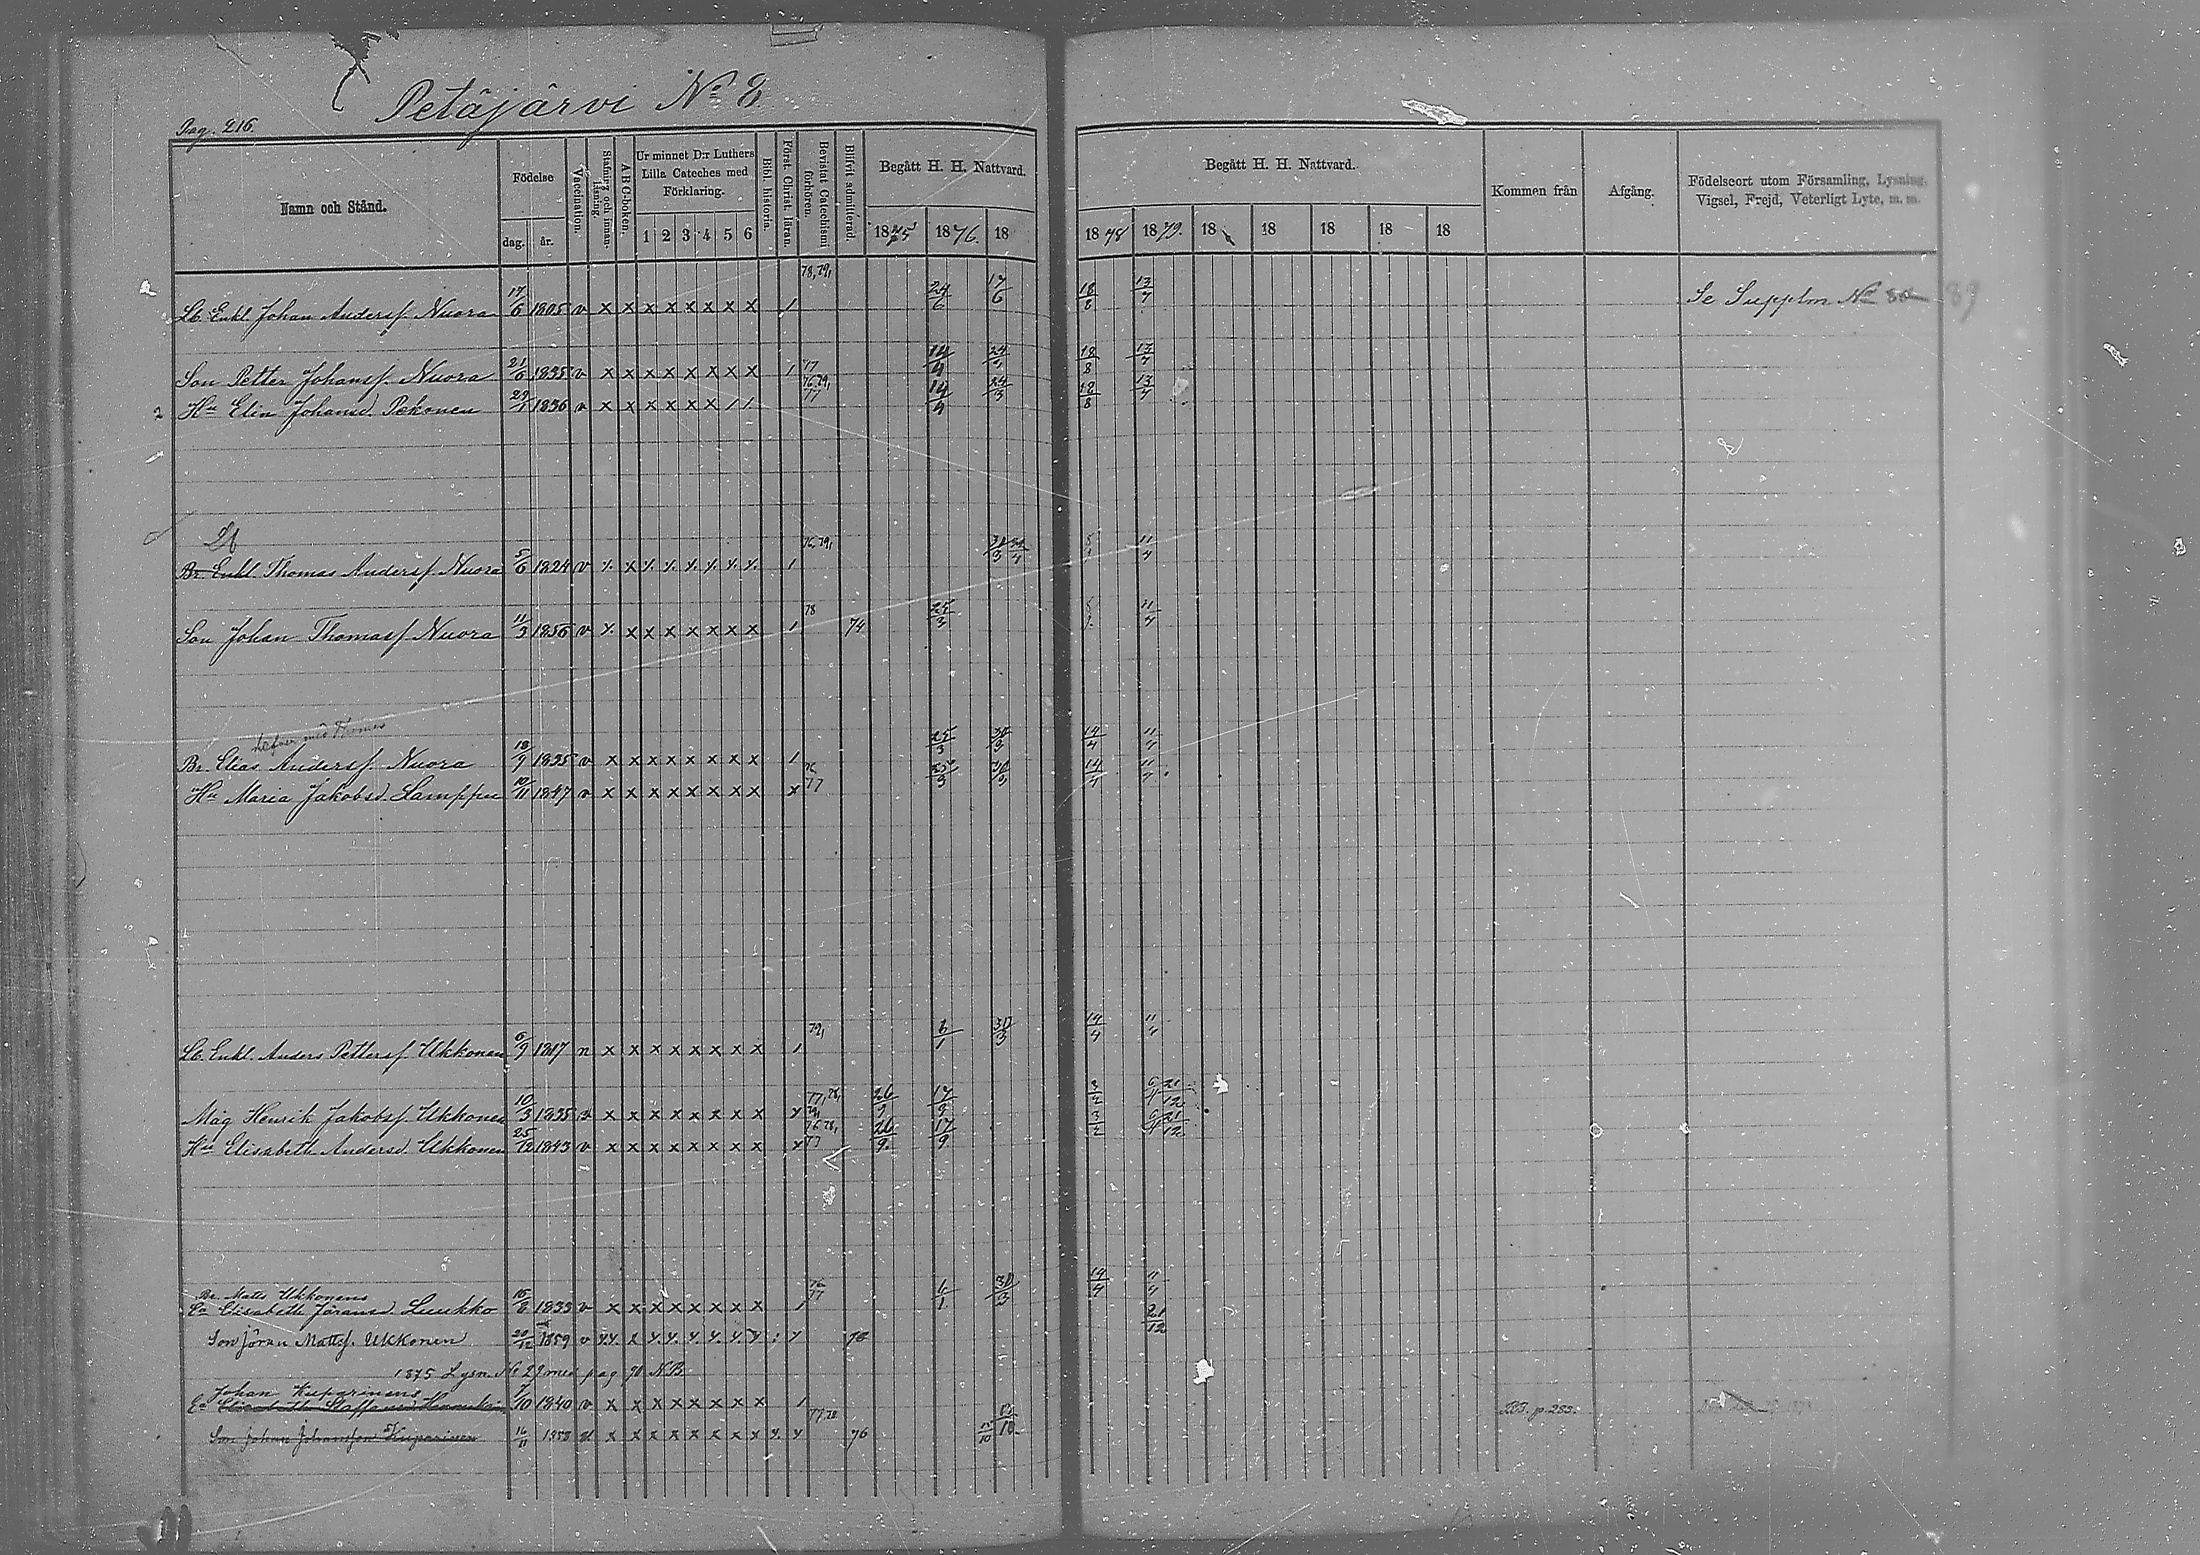 Pag. 216.
Petäjärvi No 8
Namn och Stånd.
Födelse
dag. år.
Vaccination.
Stafning och innanläsning.
A B C-boken.
Ur minnet D:r Luthers Lilla Cateches med Förklaring.
1 2 3 4 5 6
Bibl. historia.
Först. Christ. läran.
Bevistat Catechismi förhören.
Blifvit admitterad.
Begått H. H. Nattvard.
1875 1876. 18
Begått H. H. Nattvard.
1878 1879. 18 18 18 18 18
Kommen från
Afgång.
Födelseort utom Församling, Lysning, Vigsel, Frejd, Veterligt Lyte, m. m.
78, 79,
Lb. Enkl. Johan Anderss. Nuora 17/6 1805 v x x x x x x x x 1 24/6 17/6 18/8 13/7 Se Supplm No 89
Son Petter Johanss. Nuora 21/6 1835 v x x x x x x x x 1 77 14/4 24/3 18/8 13/7
2 Hu Elin Johansd. Pekonen 29/1 1836 v x x x x x x 1 1 76,79, 77 14/4 24/3 18/8 13/7
Lb
Br. Enkl. Thomas Anderss. Nuora 5/6 1824 v x x x x x x x x 1 76, 79, 11/4
Son Johan Thomass. Nuora 11/3 1856 v x x x x x x x x 1 78 74 25/3 11/4
lefver med Thomas
Br. Elias Anderss. Nuora 18/9 1835 v x x x x x x x x 1 25/3 30/3 14/4 11/4
Hu Maria Jakobsd. Lamppu 10/11 1847 v x x x x x x x x x 76, 77 25/3 30/3 14/4 11/4
Lb. Enkl. Anders Petterss. Ukkonen 6/9 1817 n x x x x x x x x 1 79, 6/1 30/3 14/4 11/4
Måg Henrik Jakobss. Ukkonen 10/3 1835 v x x x x x x x x x 77, 78, 79, 26/9 17/9 3/2 6/4 21/12
Hu Elisabeth Andersd. Ukkonen 25/12 1843 v x x x x x x x x x 76 78, 77 26/9. 17/9. 3/2 6/4 21/12
Br. Matts Ukkonens
Ea Elisabeth Jöransd. Luukko 15/8 1833 v x x x x x x x x 1 76 77 6/1 30/3 14/4 11/4
Son Jöran Mattss. Ukkonen 20/12 1859 v x x x x x x x x 21/12
1875 Lysn. No 29 med pag 90 NB.
Johan Kuparinens
Ea Elisabeth Staffansd. 7/10 1840 v x x x x x x x x 1 283. p. 283.
Son Johan Johansson Kuparinen 16/11 1858 v x x x x x x x x x x 77, 78 76